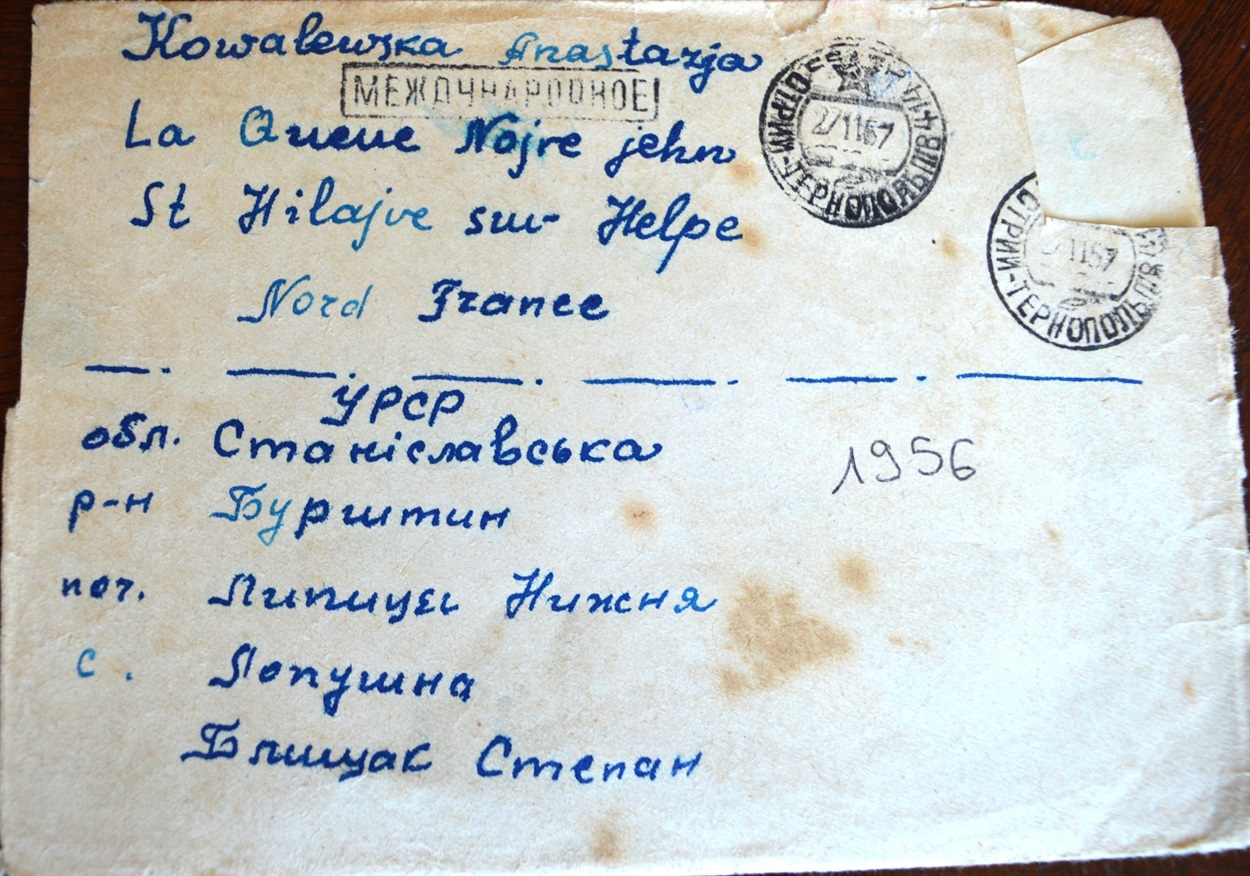 Kowalewska Anastazja
МЕЖДУНАРОДНОЕ
La Queue Nojre jehn
St Hilajve sur Helpe
Nord France
СТРИЙ-ТЕРНОПОЛЬ
271157
СТРИЙ-ТЕРНОПОЛЬ
1157
УРСР
обл. Станіславська
1956
р-н Бурштин
поч. Липицеі Нижня
с. Лопушна
Блищак Степан